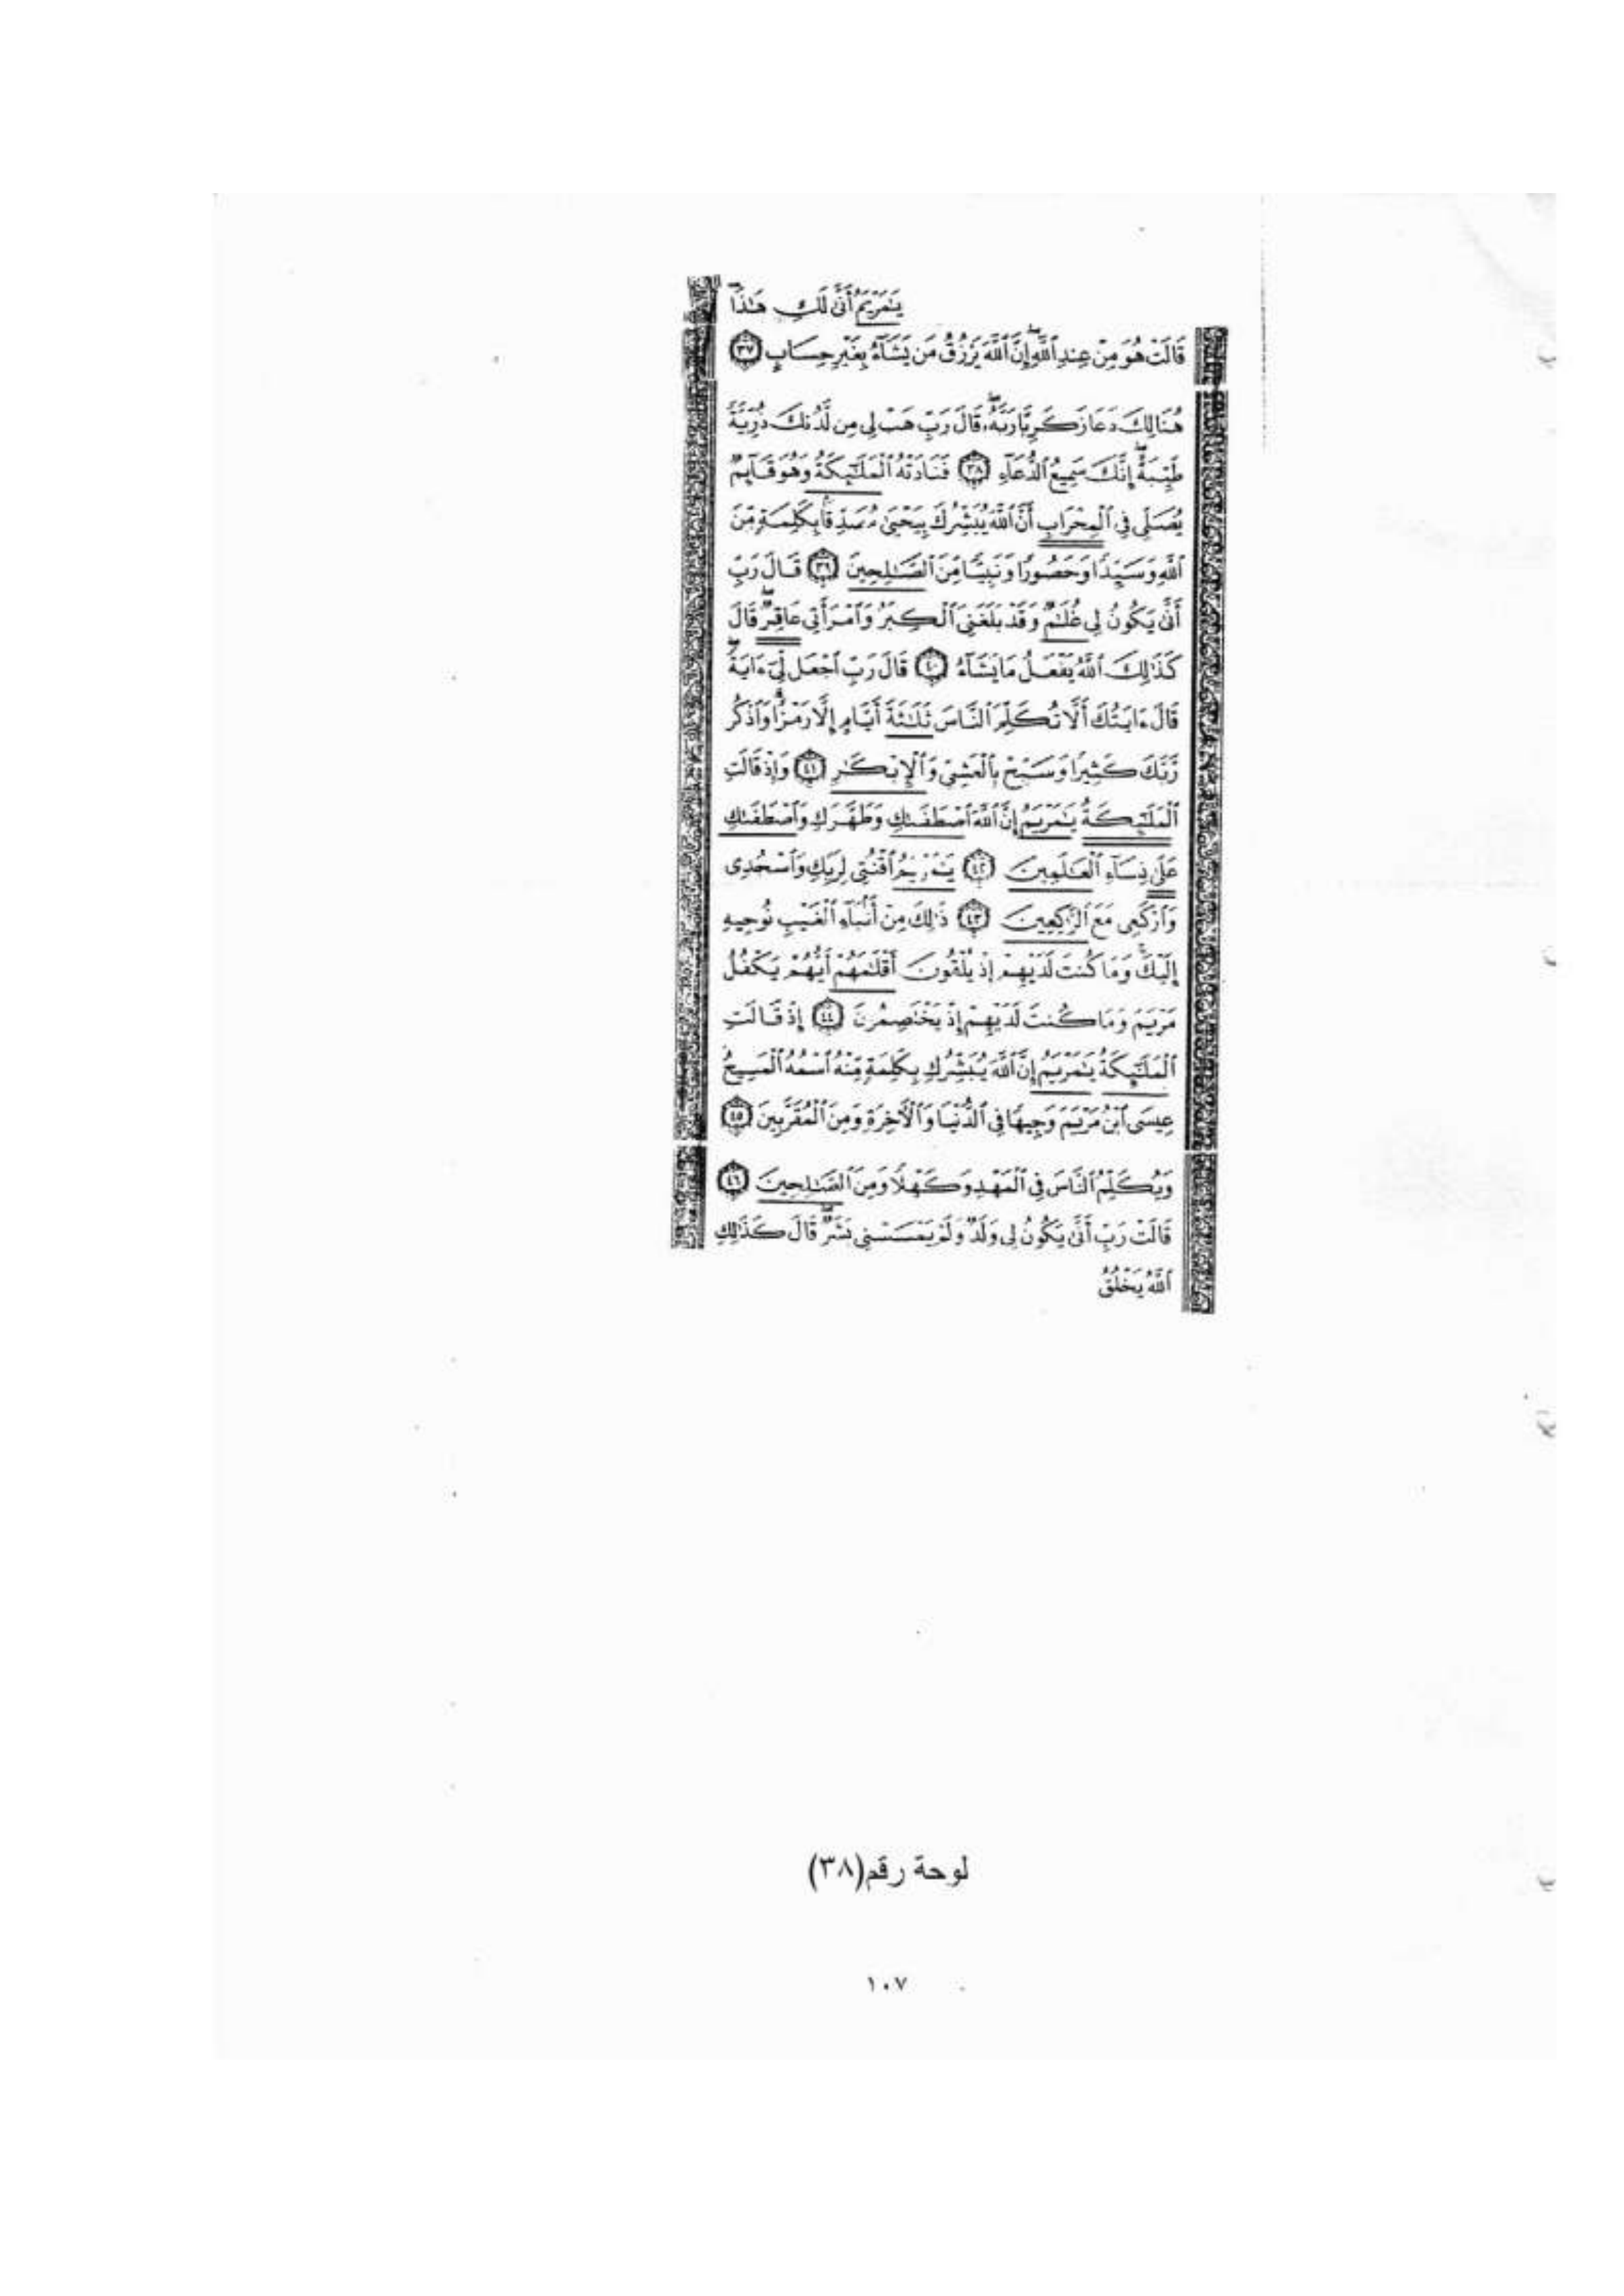 يَٰمَرْيَمُ أَنَّىٰ لَكِ هَٰذَا ۖ
قَالَتْ هُوَ مِنْ عِندِ ٱللَّهِ ۖ إِنَّ ٱللَّهَ يَرْزُقُ مَن يَشَآءُ بِغَيْرِ حِسَابٍ ٣٧
هُنَالِكَ دَعَا زَكَرِيَّا رَبَّهُۥ ۖ قَالَ رَبِّ هَبْ لِى مِن لَّدُنكَ ذُرِّيَّةً
طَيِّبَةً ۖ إِنَّكَ سَمِيعُ ٱلدُّعَآءِ ٣٨ فَنَادَتْهُ ٱلْمَلَٰٓئِكَةُ وَهُوَ قَآئِمٌ
يُصَلِّى فِى ٱلْمِحْرَابِ أَنَّ ٱللَّهَ يُبَشِّرُكَ بِيَحْيَىٰ مُصَدِّقًۢا بِكَلِمَةٍ مِّنَ
ٱللَّهِ وَسَيِّدًا وَحَصُورًا وَنَبِيًّا مِّنَ ٱلصَّٰلِحِينَ ٣٩ قَالَ رَبِّ
أَنَّىٰ يَكُونُ لِى غُلَٰمٌ وَقَدْ بَلَغَنِىَ ٱلْكِبَرُ وَٱمْرَأَتِى عَاقِرٌ ۖ قَالَ
كَذَٰلِكَ ٱللَّهُ يَفْعَلُ مَا يَشَآءُ ٤٠ قَالَ رَبِّ ٱجْعَل لِّىٓ ءَايَةً ۖ
قَالَ ءَايَتُكَ أَلَّا تُكَلِّمَ ٱلنَّاسَ ثَلَٰثَةَ أَيَّامٍ إِلَّا رَمْزًا ۗ وَٱذْكُر
رَّبَّكَ كَثِيرًا وَسَبِّحْ بِٱلْعَشِىِّ وَٱلْإِبْكَٰرِ ٤١ وَإِذْ قَالَتِ
ٱلْمَلَٰٓئِكَةُ يَٰمَرْيَمُ إِنَّ ٱللَّهَ ٱصْطَفَىٰكِ وَطَهَّرَكِ وَٱصْطَفَىٰكِ
عَلَىٰ نِسَآءِ ٱلْعَٰلَمِينَ ٤٢ يَٰمَرْيَمُ ٱقْنُتِى لِرَبِّكِ وَٱسْجُدِى
وَٱرْكَعِى مَعَ ٱلرَّٰكِعِينَ ٤٣ ذَٰلِكَ مِنْ أَنۢبَآءِ ٱلْغَيْبِ نُوحِيهِ
إِلَيْكَ ۚ وَمَا كُنتَ لَدَيْهِمْ إِذْ يُلْقُونَ أَقْلَٰمَهُمْ أَيُّهُمْ يَكْفُلُ
مَرْيَمَ وَمَا كُنتَ لَدَيْهِمْ إِذْ يَخْتَصِمُونَ ٤٤ إِذْ قَالَتِ
ٱلْمَلَٰٓئِكَةُ يَٰمَرْيَمُ إِنَّ ٱللَّهَ يُبَشِّرُكِ بِكَلِمَةٍ مِّنْهُ ٱسْمُهُ ٱلْمَسِيحُ
عِيسَى ٱبْنُ مَرْيَمَ وَجِيهًا فِى ٱلدُّنْيَا وَٱلْءَاخِرَةِ وَمِنَ ٱلْمُقَرَّبِينَ ٤٥
وَيُكَلِّمُ ٱلنَّاسَ فِى ٱلْمَهْدِ وَكَهْلًا وَمِنَ ٱلصَّٰلِحِينَ ٤٦
قَالَتْ رَبِّ أَنَّىٰ يَكُونُ لِى وَلَدٌ وَلَمْ يَمْسَسْنِى بَشَرٌ ۖ قَالَ كَذَٰلِكِ
ٱللَّهُ يَخْلُقُ
لوحة رقم(٣٨)
١٠٧